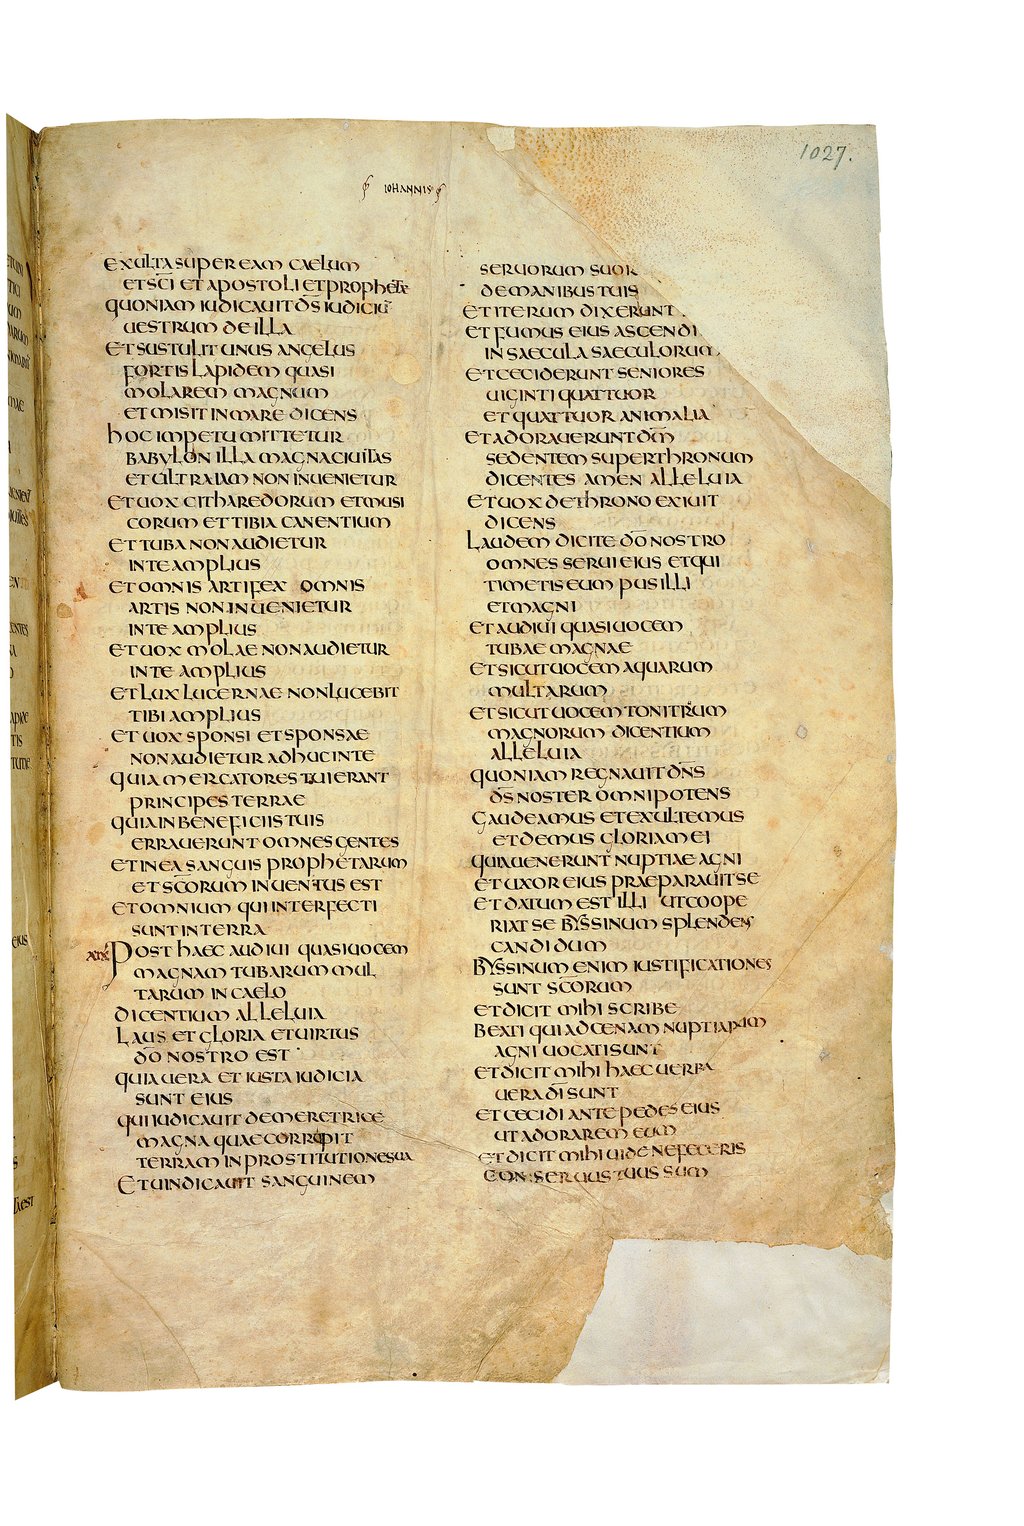 1027.
IOHANNIS
EXULTA SUPER EAM CAELUM
ET SC̅I ET APOSTOLI ET PROPHETAE
QUONIAM IUDICAUIT D̅S̅ IUDICIU̅
UESTRUM DE ILLA
ET SUSTULIT UNUS ANGELUS
FORTIS LAPIDEM QUASI
MOLAREM MAGNUM
ET MISIT IN MARE DICENS
HOC IMPETU MITTETUR
BABYLON ILLA MAGNA CIUITAS
ET ULTRA IAM NON INUENIETUR
ET UOX CITHAREDORUM ET MUSI
CORUM ET TIBIA CANENTIUM
ET TUBA NON AUDIETUR
IN TE AMPLIUS
ET OMNIS ARTIFEX OMNIS
ARTIS NON INUENIETUR
IN TE AMPLIUS
ET UOX MOLAE NON AUDIETUR
IN TE AMPLIUS
ET LUX LUCERNAE NON LUCEBIT
TIBI AMPLIUS
ET UOX SPONSI ET SPONSAE
NON AUDIETUR ADHUC IN TE
QUIA MERCATORES TUI ERANT
PRINCIPES TERRAE
QUIA IN BENEFICIIS TUIS
ERRAUERUNT OMNES GENTES
ET IN EA SANGUIS PROPHETARUM
ET SC̅ORUM INUENTUS EST
ET OMNIUM QUI INTERFECTI
SUNT IN TERRA
POST HAEC AUDIUI QUASI UOCEM
MAGNAM TUBARUM MUL
TARUM IN CAELO
DICENTIUM ALLELUIA
LAUS ET GLORIA ET UIRTUS
D̅O̅ NOSTRO EST
QUIA UERA ET IUSTA IUDICIA
SUNT EIUS
QUI IUDICAUIT DE MERETRICE
MAGNA QUAE CORRUPIT
TERRAM IN PROSTITUTIONE SUA
ET UINDICAUIT SANGUINEM
SERUORUM SUOR
DE MANIBUS TUIS
ET ITERUM DIXERUNT
ET FUMUS EIUS ASCENDI
IN SAECULA SAECULORUM
ET CECIDERUNT SENIORES
UIGINTI QUATTUOR
ET QUATTUOR ANIMALIA
ET ADORAUERUNT D̅M̅
SEDENTEM SUPER THRONUM
DICENTES AMEN ALLELUIA
ET UOX DE THRONO EXIUIT
DICENS
LAUDEM DICITE D̅O̅ NOSTRO
OMNES SERUI EIUS ET QUI
TIMETIS EUM PUSILLI
ET MAGNI
ET AUDIUI QUASI UOCEM
TUBAE MAGNAE
ET SICUT UOCEM AQUARUM
MULTARUM
ET SICUT UOCEM TONITRUUM
MAGNORUM DICENTIUM
ALLELUIA
QUONIAM REGNAUIT D̅N̅S̅
D̅S̅ NOSTER OMNIPOTENS
GAUDEAMUS ET EXULTEMUS
ET DEMUS GLORIAM EI
QUIA UENERUNT NUPTIAE AGNI
ET UXOR EIUS PRAEPARAUIT SE
ET DATUM EST ILLI UT COOPE
RIAT SE BYSSINUM SPLENDENS
CANDIDUM
BYSSINUM ENIM IUSTIFICATIONES
SUNT SC̅ORUM
ET DICIT MIHI SCRIBE
BEATI QUI AD CENAM NUPTIARUM
AGNI UOCATI SUNT
ET DICIT MIHI HAEC UERBA
UERA D̅I̅ SUNT
ET CECIDI ANTE PEDES EIUS
UT ADORAREM EUM
ET DICIT MIHI UIDE NE FECERIS
CONSERUUS TUUS SUM